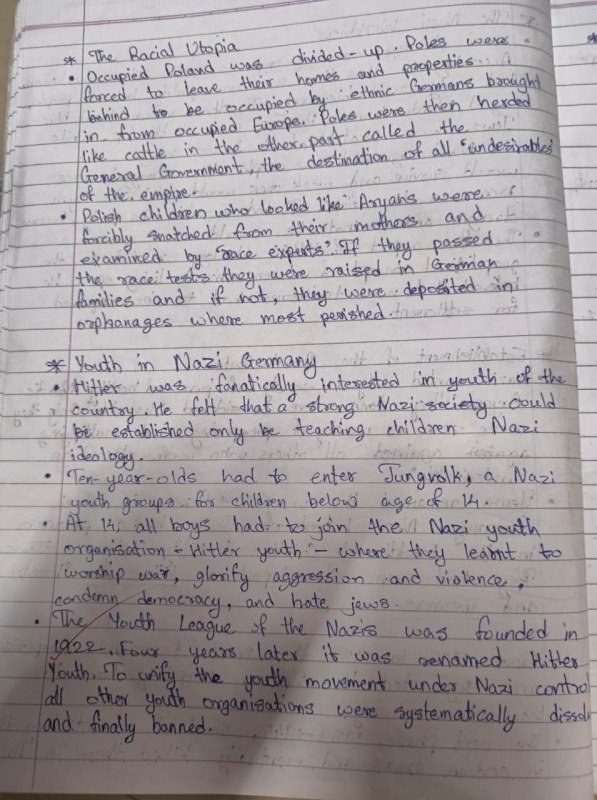 * The Racial Utopia
• Occupied Poland was divided-up. Poles were
forced to leave their homes and properties
behind to be occupied by ethnic Germans brought
in from occupied Europe. Poles were then herded
like cattle in the other part called the
General Government, the destination of all "undesirables"
of the empire.
• Polish children who looked like Aryans were
forcibly snatched from their mothers and
examined by "race experts". If they passed
the race tests they were raised in German
families and if not, they were deposited in
orphanages where most perished.
* Youth in Nazi Germany
• Hitler was fanatically interested in youth of the
country. He felt that a strong Nazi society could
be established only be teaching children Nazi
ideology.
• Ten-year-olds had to enter Jungvolk, a Nazi
youth groups for children below age of 14.
• At 14, all boys had to join the Nazi youth
organisation - Hitler youth - where they learnt to
worship war, glorify aggression and violence,
condemn democracy, and hate jews.
• The Youth League of the Nazis was founded in
1922. Four years later it was renamed Hitler
Youth. To unify the youth movement under Nazi control
all other youth organisations were systematically dissol
and finally banned.